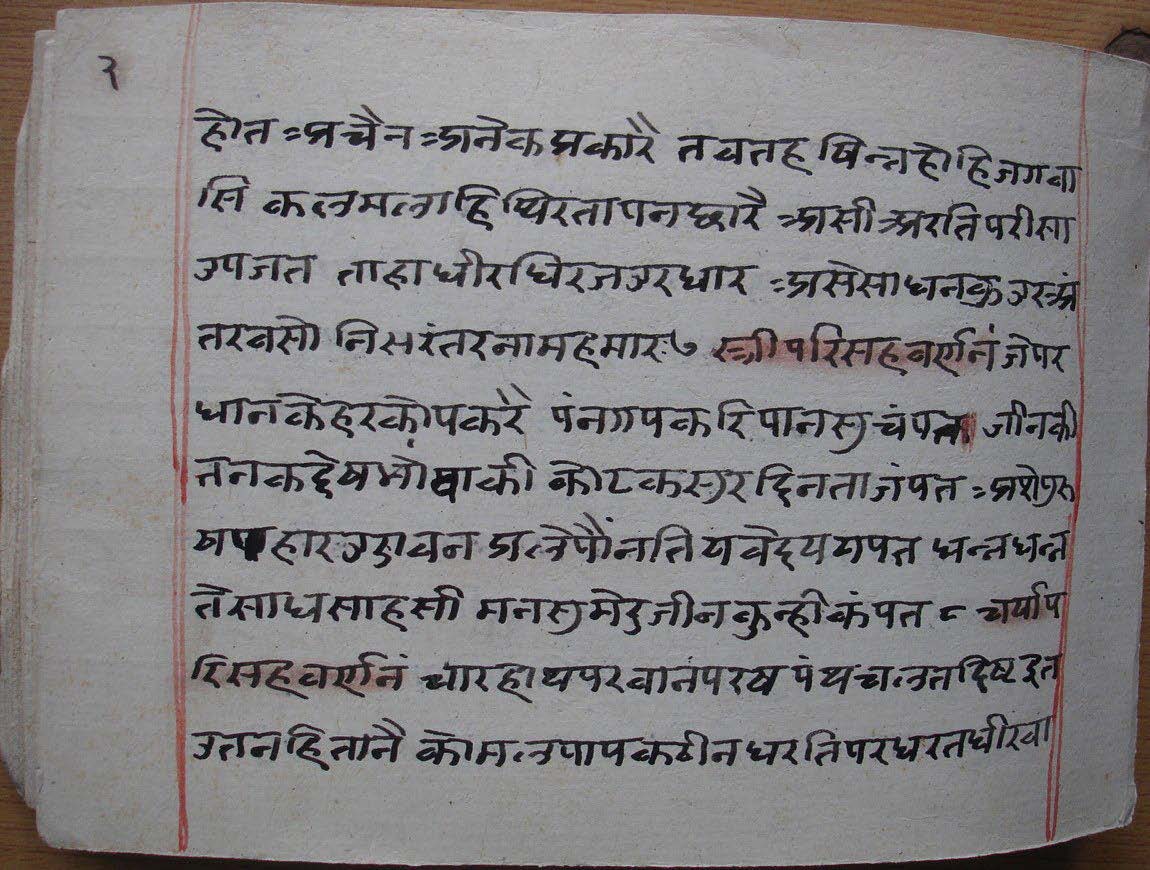 ३
होत अचैन अनेक प्रकारै तब तह षिन्न होहि जगवा
सि कलमलाहि थिरतापन छारै असी अरति परीसा
उपजत ताहा धीर धिरज उर धार असे साधनकु उर अं
तर वसो निसरंतर नाम हमार ७ स्त्री परिसह वर्णनं जे पर
धान केहरको पकरै पंनग पकरि पानसु चंपत जीनकी
तनक देष भौ बाकी कोटक सुर दिनता जंपत
हार उडावन प्रलै पौंन तिय वेद
ते साध साहसी मन सुमेदु जीनकु न्ही कंपत ८ चर्याप
रिसह वर्णनं चार हाथ परवानं परष पंथ चलत द्दिष्ट इत
उत नहि तानै कोमल पाप कठीन धरति पर धरत धीर वा